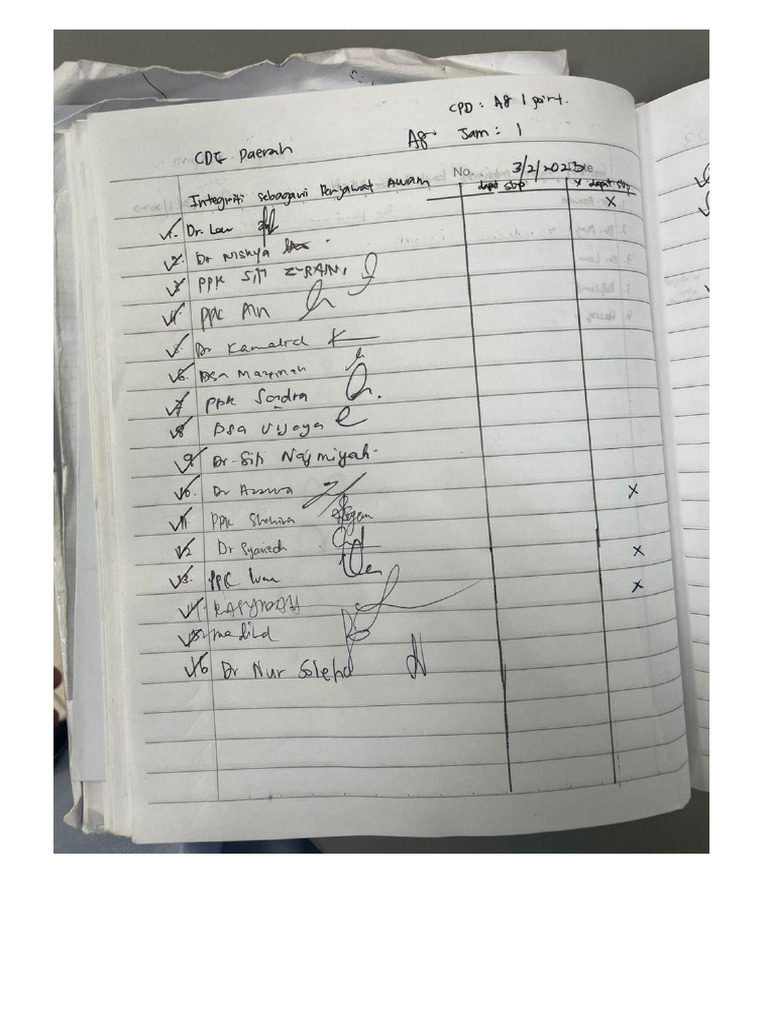 CPD : A8 1 point.
CDE Daerah A8 Jam : 1
No. 3/2/2023
Integriti sebagai Penjawat Awam dapat slip x dapat slip
1. Dr. Law x
2. Dr Nishya
3 PPK Siti ZURAINI
4. PPK Ain
5. Dr Kamalrd
6. DSA Mazimah
7 PPK Sandra
8 DSA Vijaya
9. Dr. Siti Najmiyah
10. Dr Azawa x
11. PPK Shahira
12 Dr Syariedh x
13. PPK Wan x
14.
15. madihd
16 Dr Nur Soleha